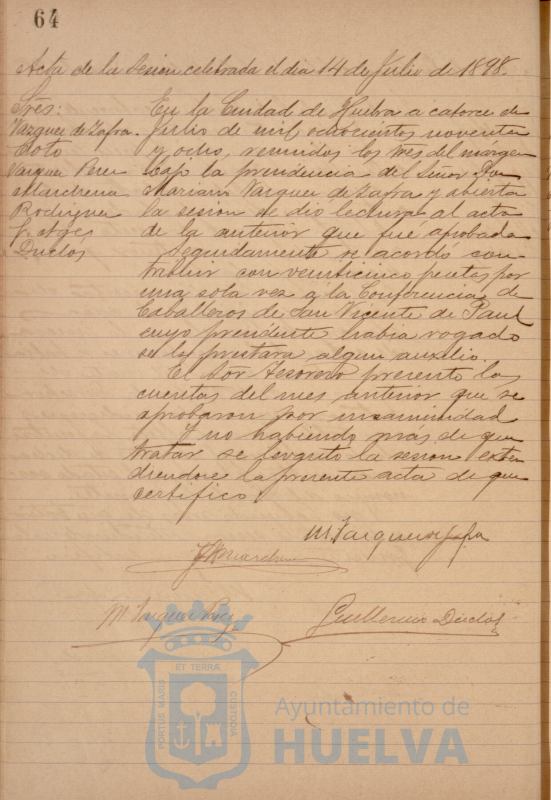 64
Acta de la sesion celebrada el dia 14 de Julio de 1898.
Sres:
Vazquez de Zafra.
Soto
Vazquez Perez
Marchena
Rodriguez
Duclos
En la Ciudad de Huelva a catorce de
Julio de mil ochocientos noventa
y ocho, reunidos los sres del márgen
bajo la presidencia del Señor Don
Mariano Vazquez de Zafra y abierta
la sesion se dió lectura al acta
de la anterior que fue aprobada
Seguidamente se acordó con-
tribuir con veinticinco pesetas por
una sola vez á la Conferencia de
Caballeros de San Vicente de Paul
cuyo presidente habia rogado
se le prestara algun auxilio.
El Sor Tesorero presentó las
cuentas del mes anterior que se
aprobaron por unanimidad
Y no habiendo más de que
tratar se levantó la sesion exten
diendose la presente acta de que
certifico.
M. Vazquez de Zafra
Marchena
M. Vazquez Perez
Guillermo Duclos
PORTUS MARIS
ET TERRÆ
CUSTODIA
Ayuntamiento de
HUELVA